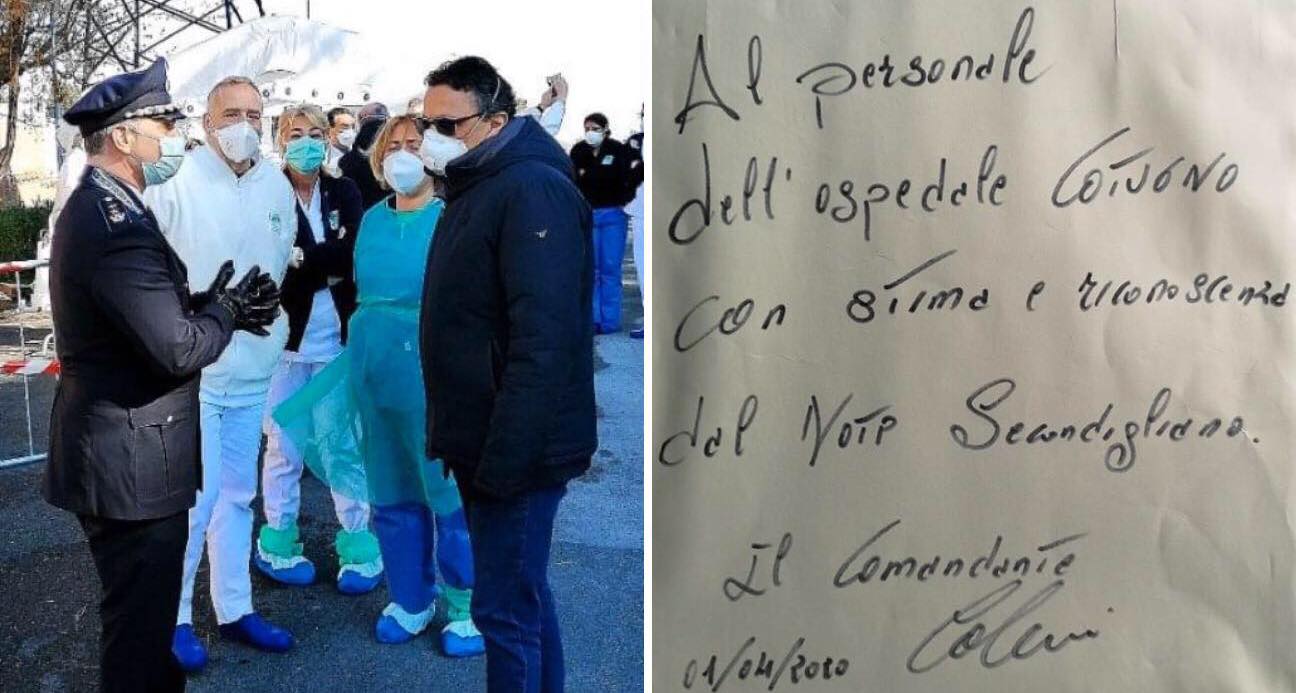 Al personale
dell'ospedale Cotugno
con stima e riconoscenza
dal Notp Secondigliano.
Il Comandante
01/04/2020